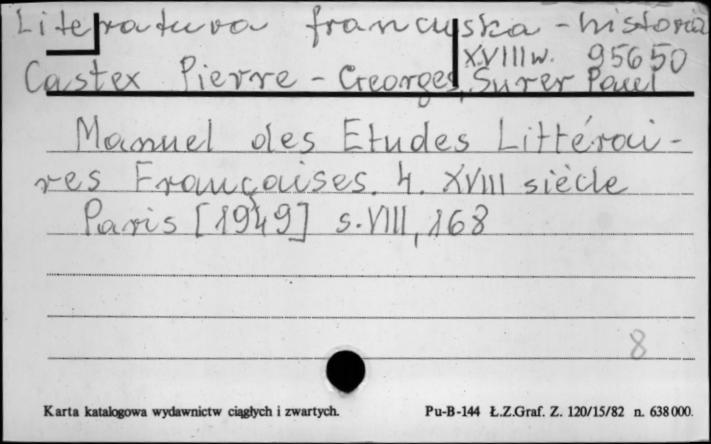 Literatura francuska - historia
XVIII w. 95650
Castex Pierre - Georges, Surer Paul
Manuel des Etudes Littérai-
res Françaises. 4. XVIII siècle
Paris [1949] s. VIII, 168
8
Karta katalogowa wydawnictw ciągłych i zwartych. Pu-B-144 Ł.Z.Graf. Z. 120/15/82 n. 638 000.